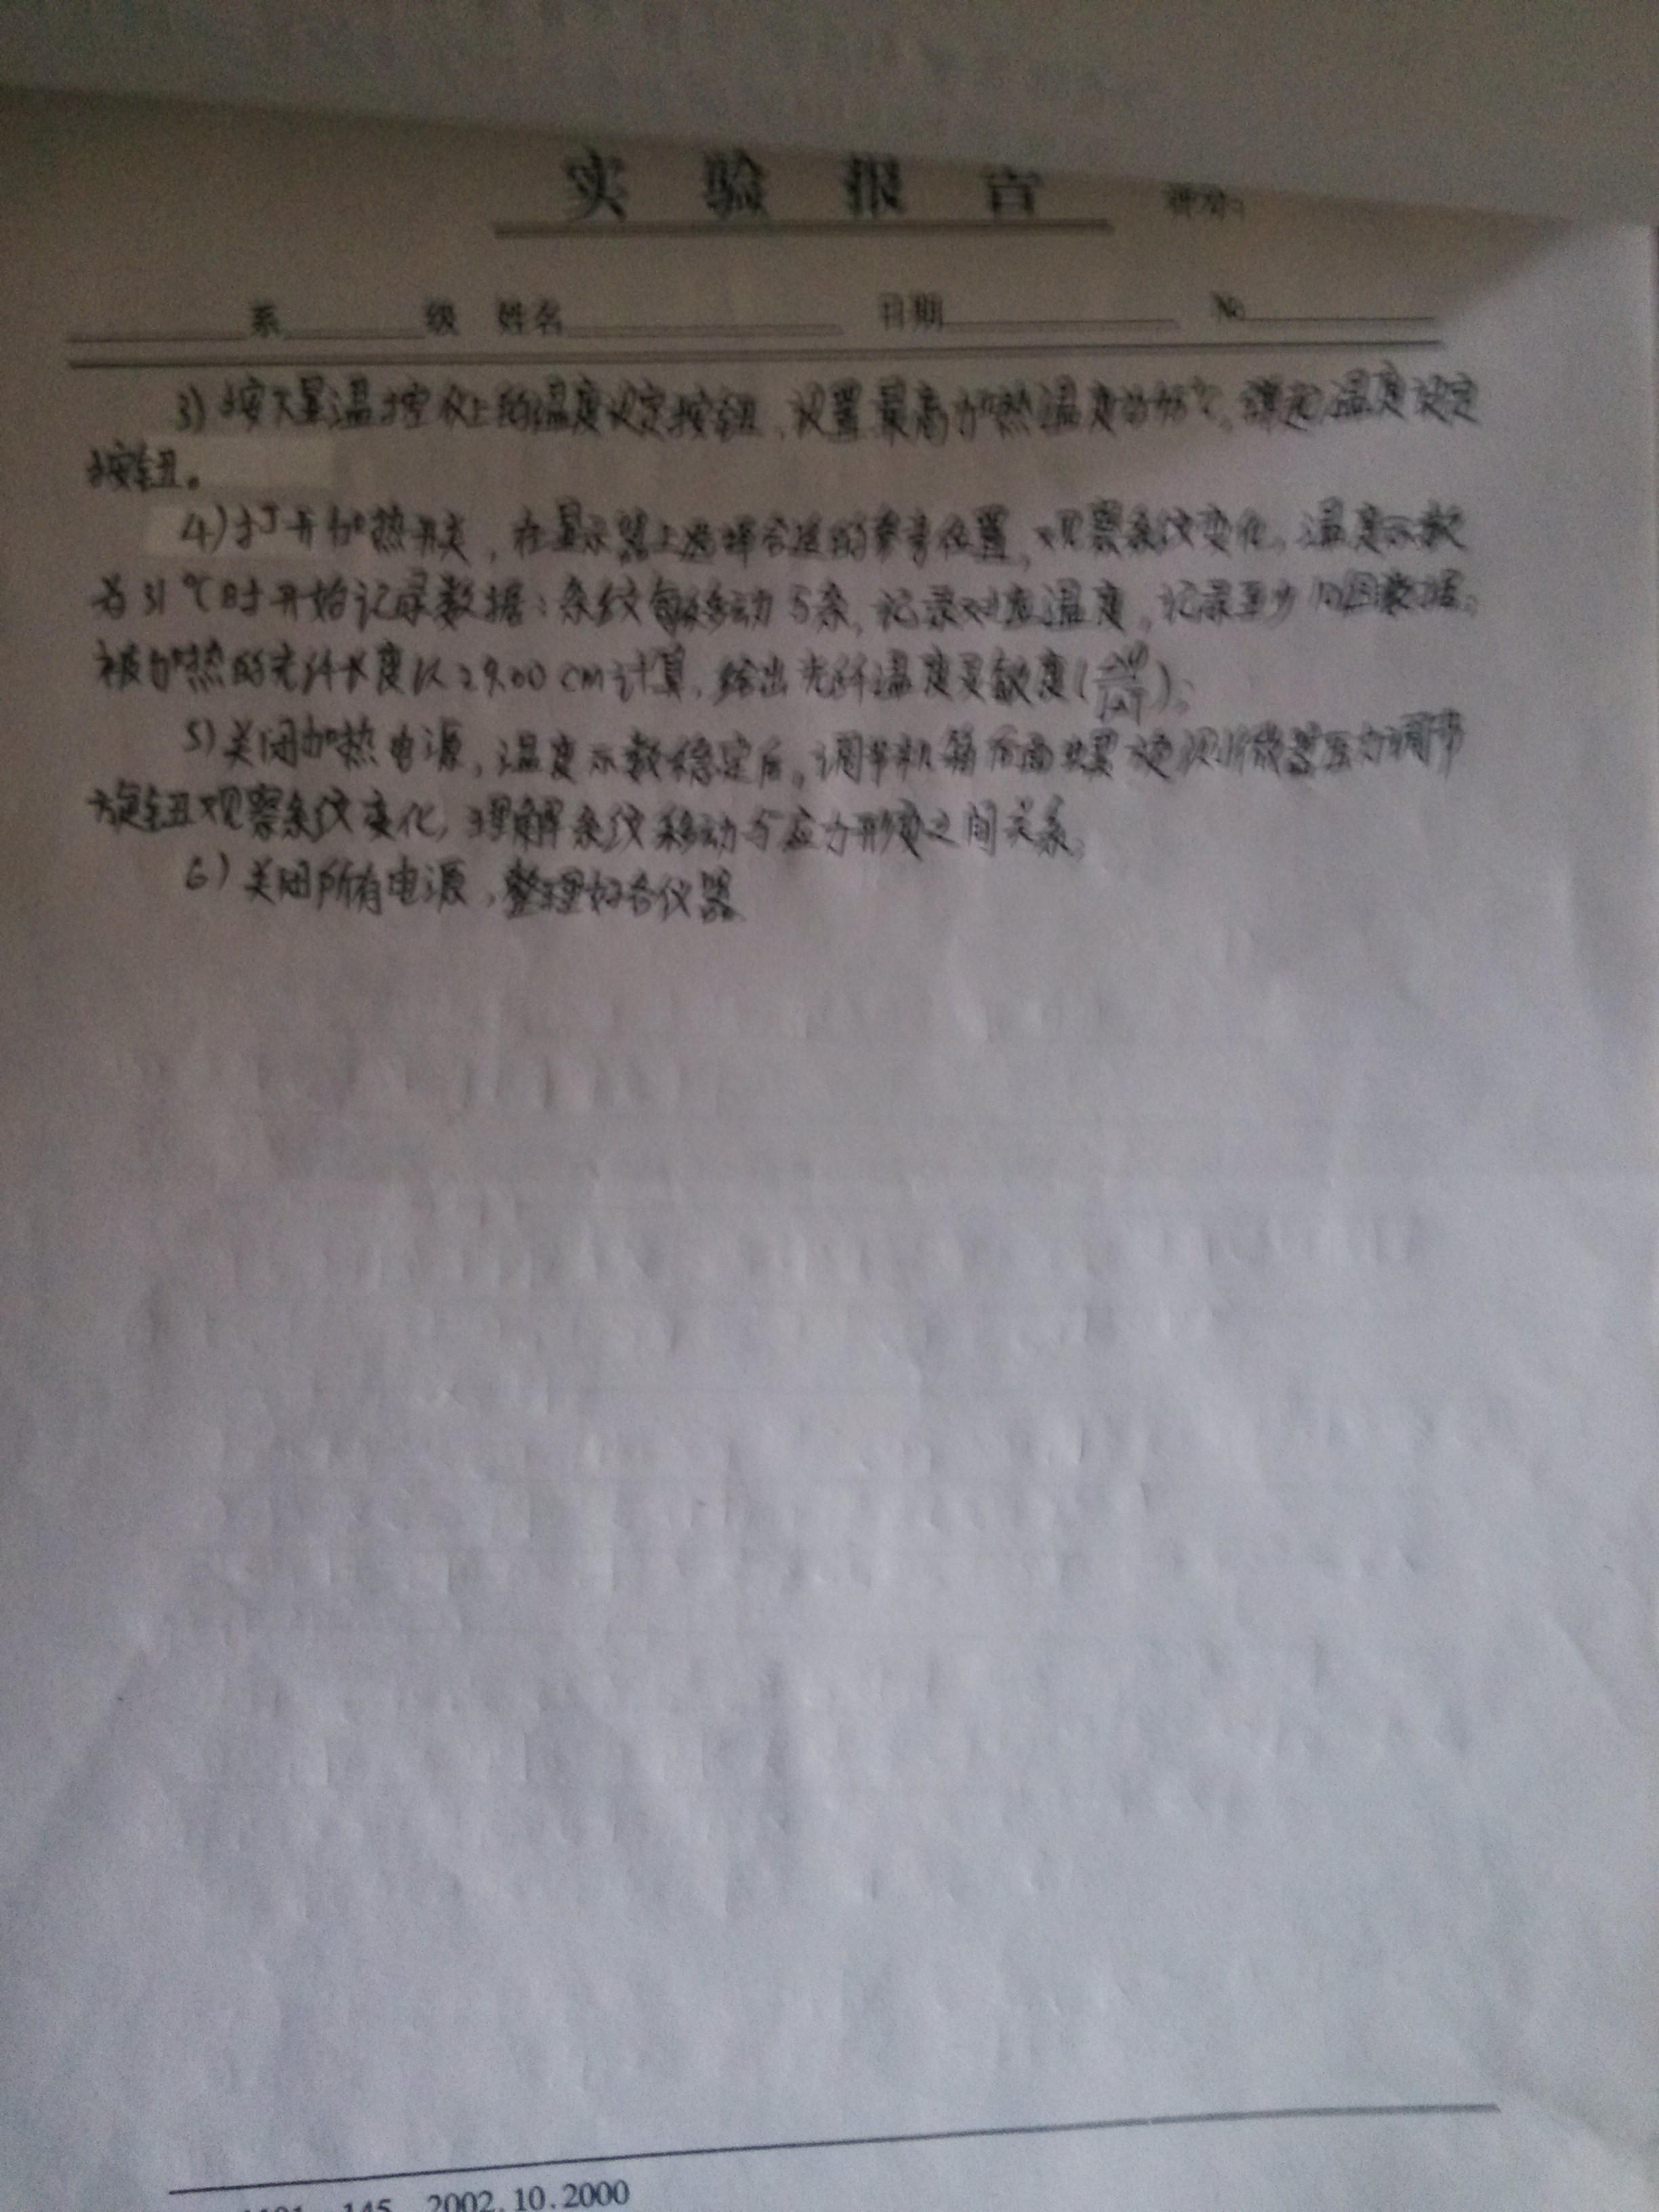 实验报告
系 级 姓名 日期 No
3)按下显温控仪上的温度设定按钮,设置最高加热温度为 ℃。弹起温度设定
按钮。
4)打开加热开关,在显示器上选择合适的参考位置,观察条纹变化。温度示数
为31℃时开始记录数据:条纹每移动5条,记录对应温度,记录至少10组数据。
被加热的光纤长度以29.00cm计算,给出光纤温度灵敏度
5)关闭加热电源,温度示数稳定后,调节机箱后面 压力调节
旋钮观察条纹变化,理解条纹移动与应力形变之间关系。
6)关闭所有电源,整理好各仪器
145 2002.10.2000